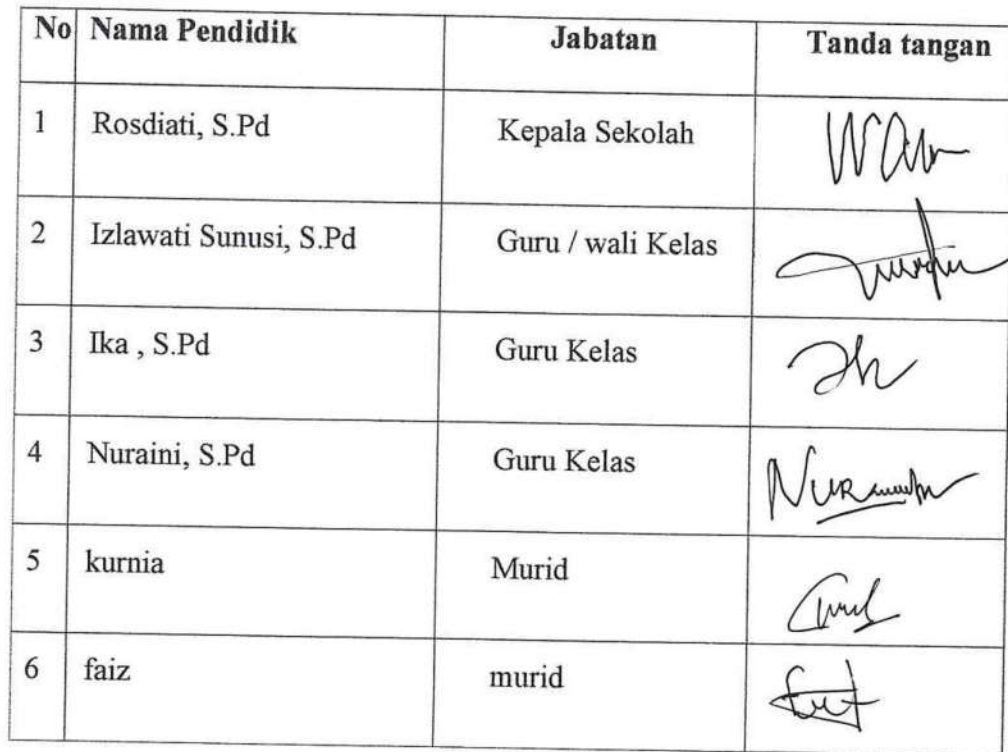 No Nama Pendidik Jabatan Tanda tangan
1 Rosdiati, S.Pd Kepala Sekolah
2 Izlawati Sunusi, S.Pd Guru / wali Kelas
3 Ika , S.Pd Guru Kelas
4 Nuraini, S.Pd Guru Kelas
5 kurnia Murid
6 faiz murid